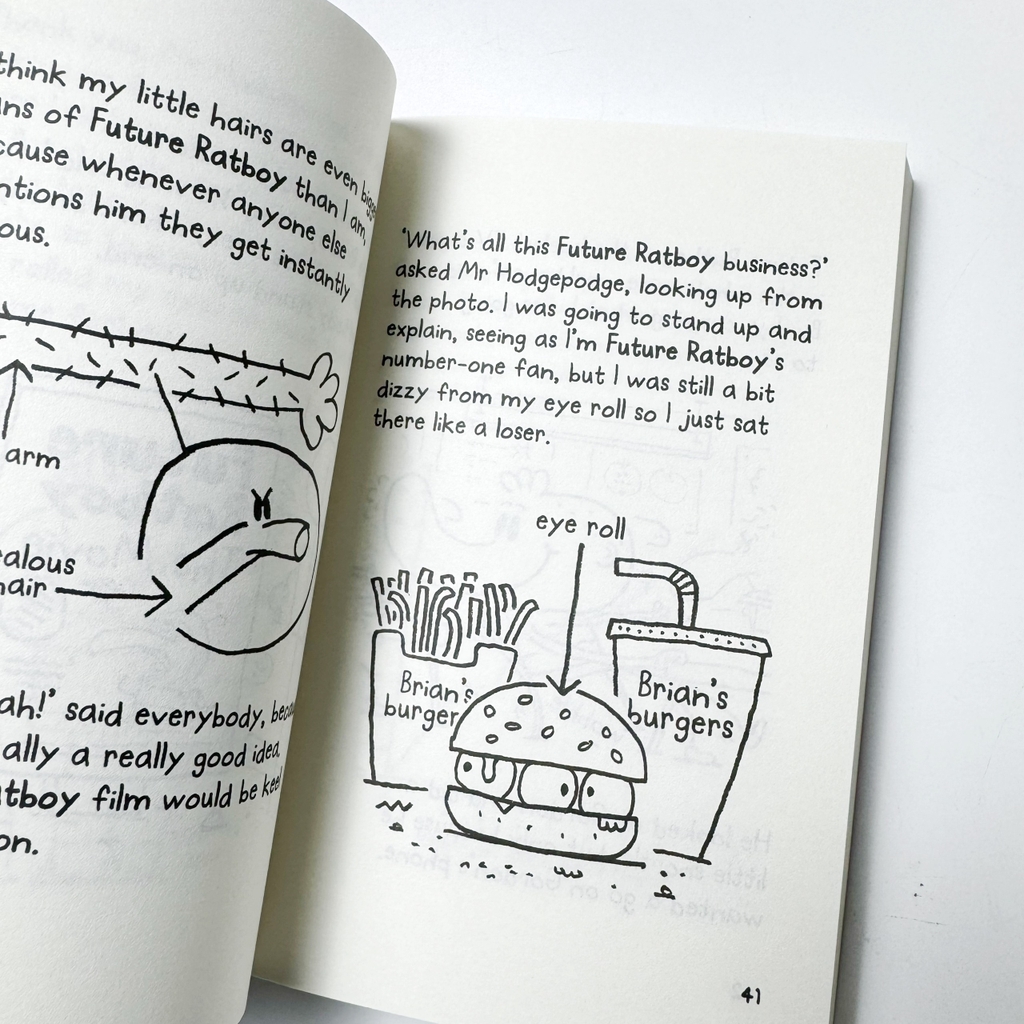 think my little hairs are even bigger
of Future Ratboy than I am,
whenever anyone else
him they get instantly
arm
hair
said everybody,
a really good idea
film would be
'What's all this Future Ratboy business?'
asked Mr Hodgepodge, looking up from
the photo. I was going to stand up and
explain, seeing as I'm Future Ratboy's
number-one fan, but I was still a bit
dizzy from my eye roll so I just sat
there like a loser.
eye roll
Brian's
burger
Brian's
burgers
41